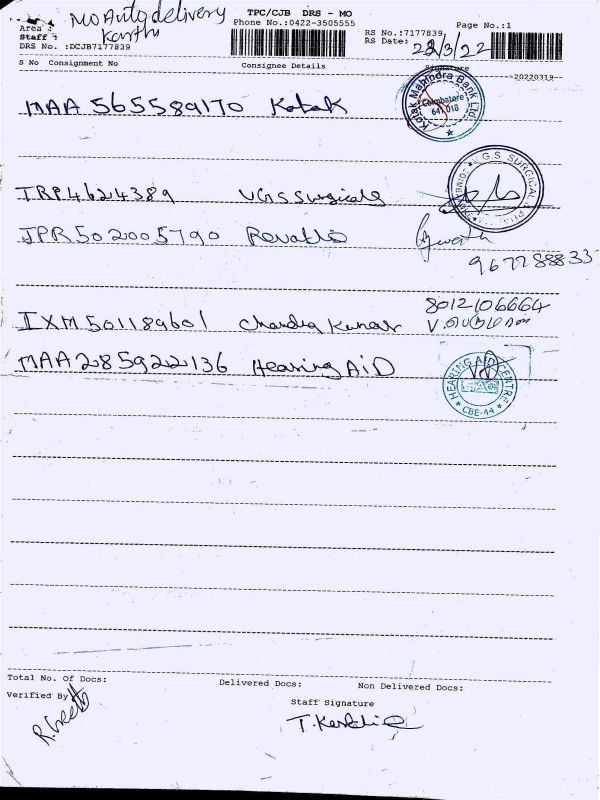 MO Auto delivery
TPC/CJB DRS - MO
Area :
Karthi
Phone No.:0422-3505555
Page No.:1
Staff :
RS No.:7177839,
DRS No. :DCJB7177839
RS Date: 28/3/22
S No Consignment No Consignee Details Signature
--20220319--
MAA 565589170 Kotak
Kotak Mahindra Bank Ltd
Coimbatore
641 018
TRP4624389 VGS Surgicals
V.G.S SURGICAL
JPR502005790
9677888337
8012106664
IXM501189601 Chandra Kumar
MAA285922136 Hearing AiD
HEARING AID CENTRE
CBE-44
Total No. Of Docs: Delivered Docs: Non Delivered Docs:
Verified By
Staff Signature